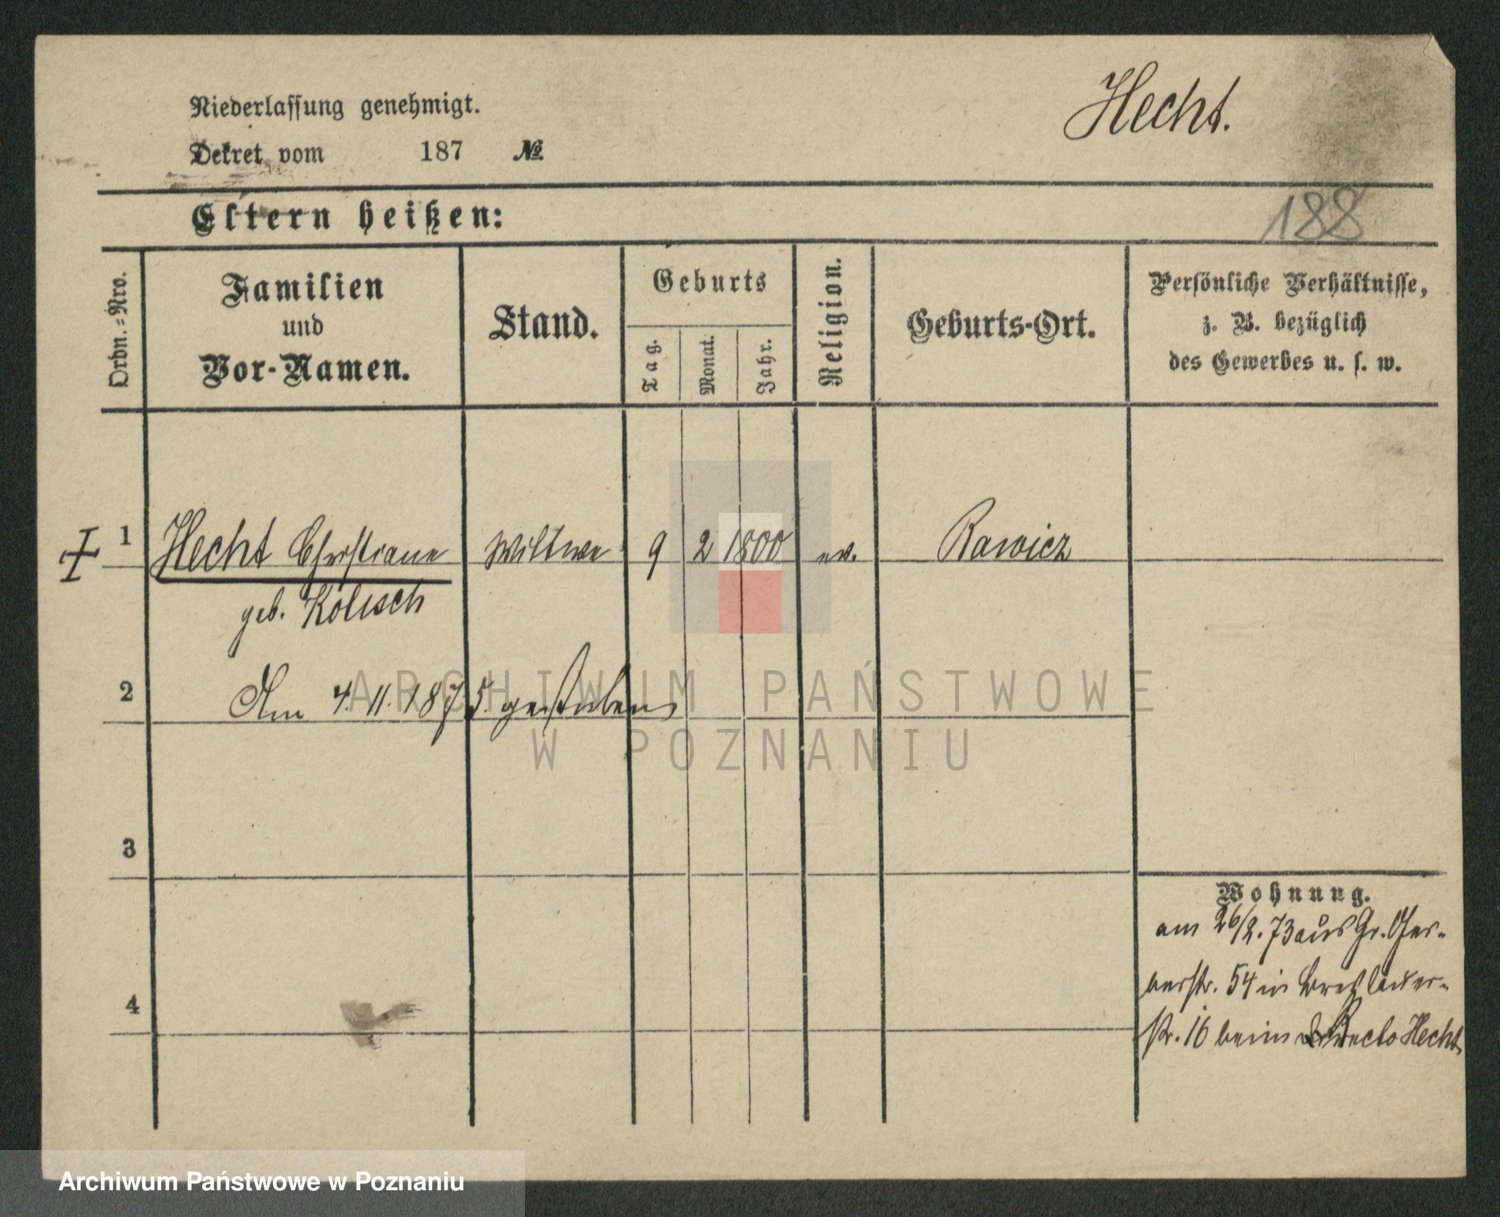 Hecht.
Niederlassung genehmigt.
Dekret vom 187 №
188
Eltern heißen:
Ordn.=Nro.
Familien
und
Vor-Namen.
Stand.
Geburts
Tag.
Monat.
Jahr.
Religion.
Geburts-Ort.
Persönliche Verhältnisse,
z. B. bezüglich
des Gewerbes u. s. w.
1 Hecht Christiane Wittwe 9 2 1800 ev. Rawicz
geb. Kolisch
2 Am 4. 11. 1875. gestorben
3
4
Wohnung.
am 26/2. 73 aus Gr. Ger-
berstr. 54 in Breslauer-
str. 16 beim Hecht
ARCHIWUM PAŃSTWOWE
W POZNANIU
Archiwum Państwowe w Poznaniu